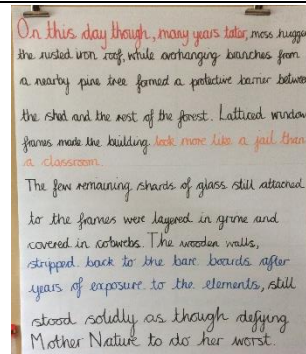 On this day though, many years later, moss hugged
the rusted iron roof, while overhanging branches from
a nearby pine tree formed a protective barrier between
the shed and the rest of the forest. Latticed window
frames made the building. look more like a jail than
a classroom.
The few remaining shards of glass still attached
to the frames were layered in grime and
covered in cobwebs. The wooden walls,
stripped back to the bare boards after
years of exposure to the elements, still
stood solidly as though defying
Mother Nature to do her worst.